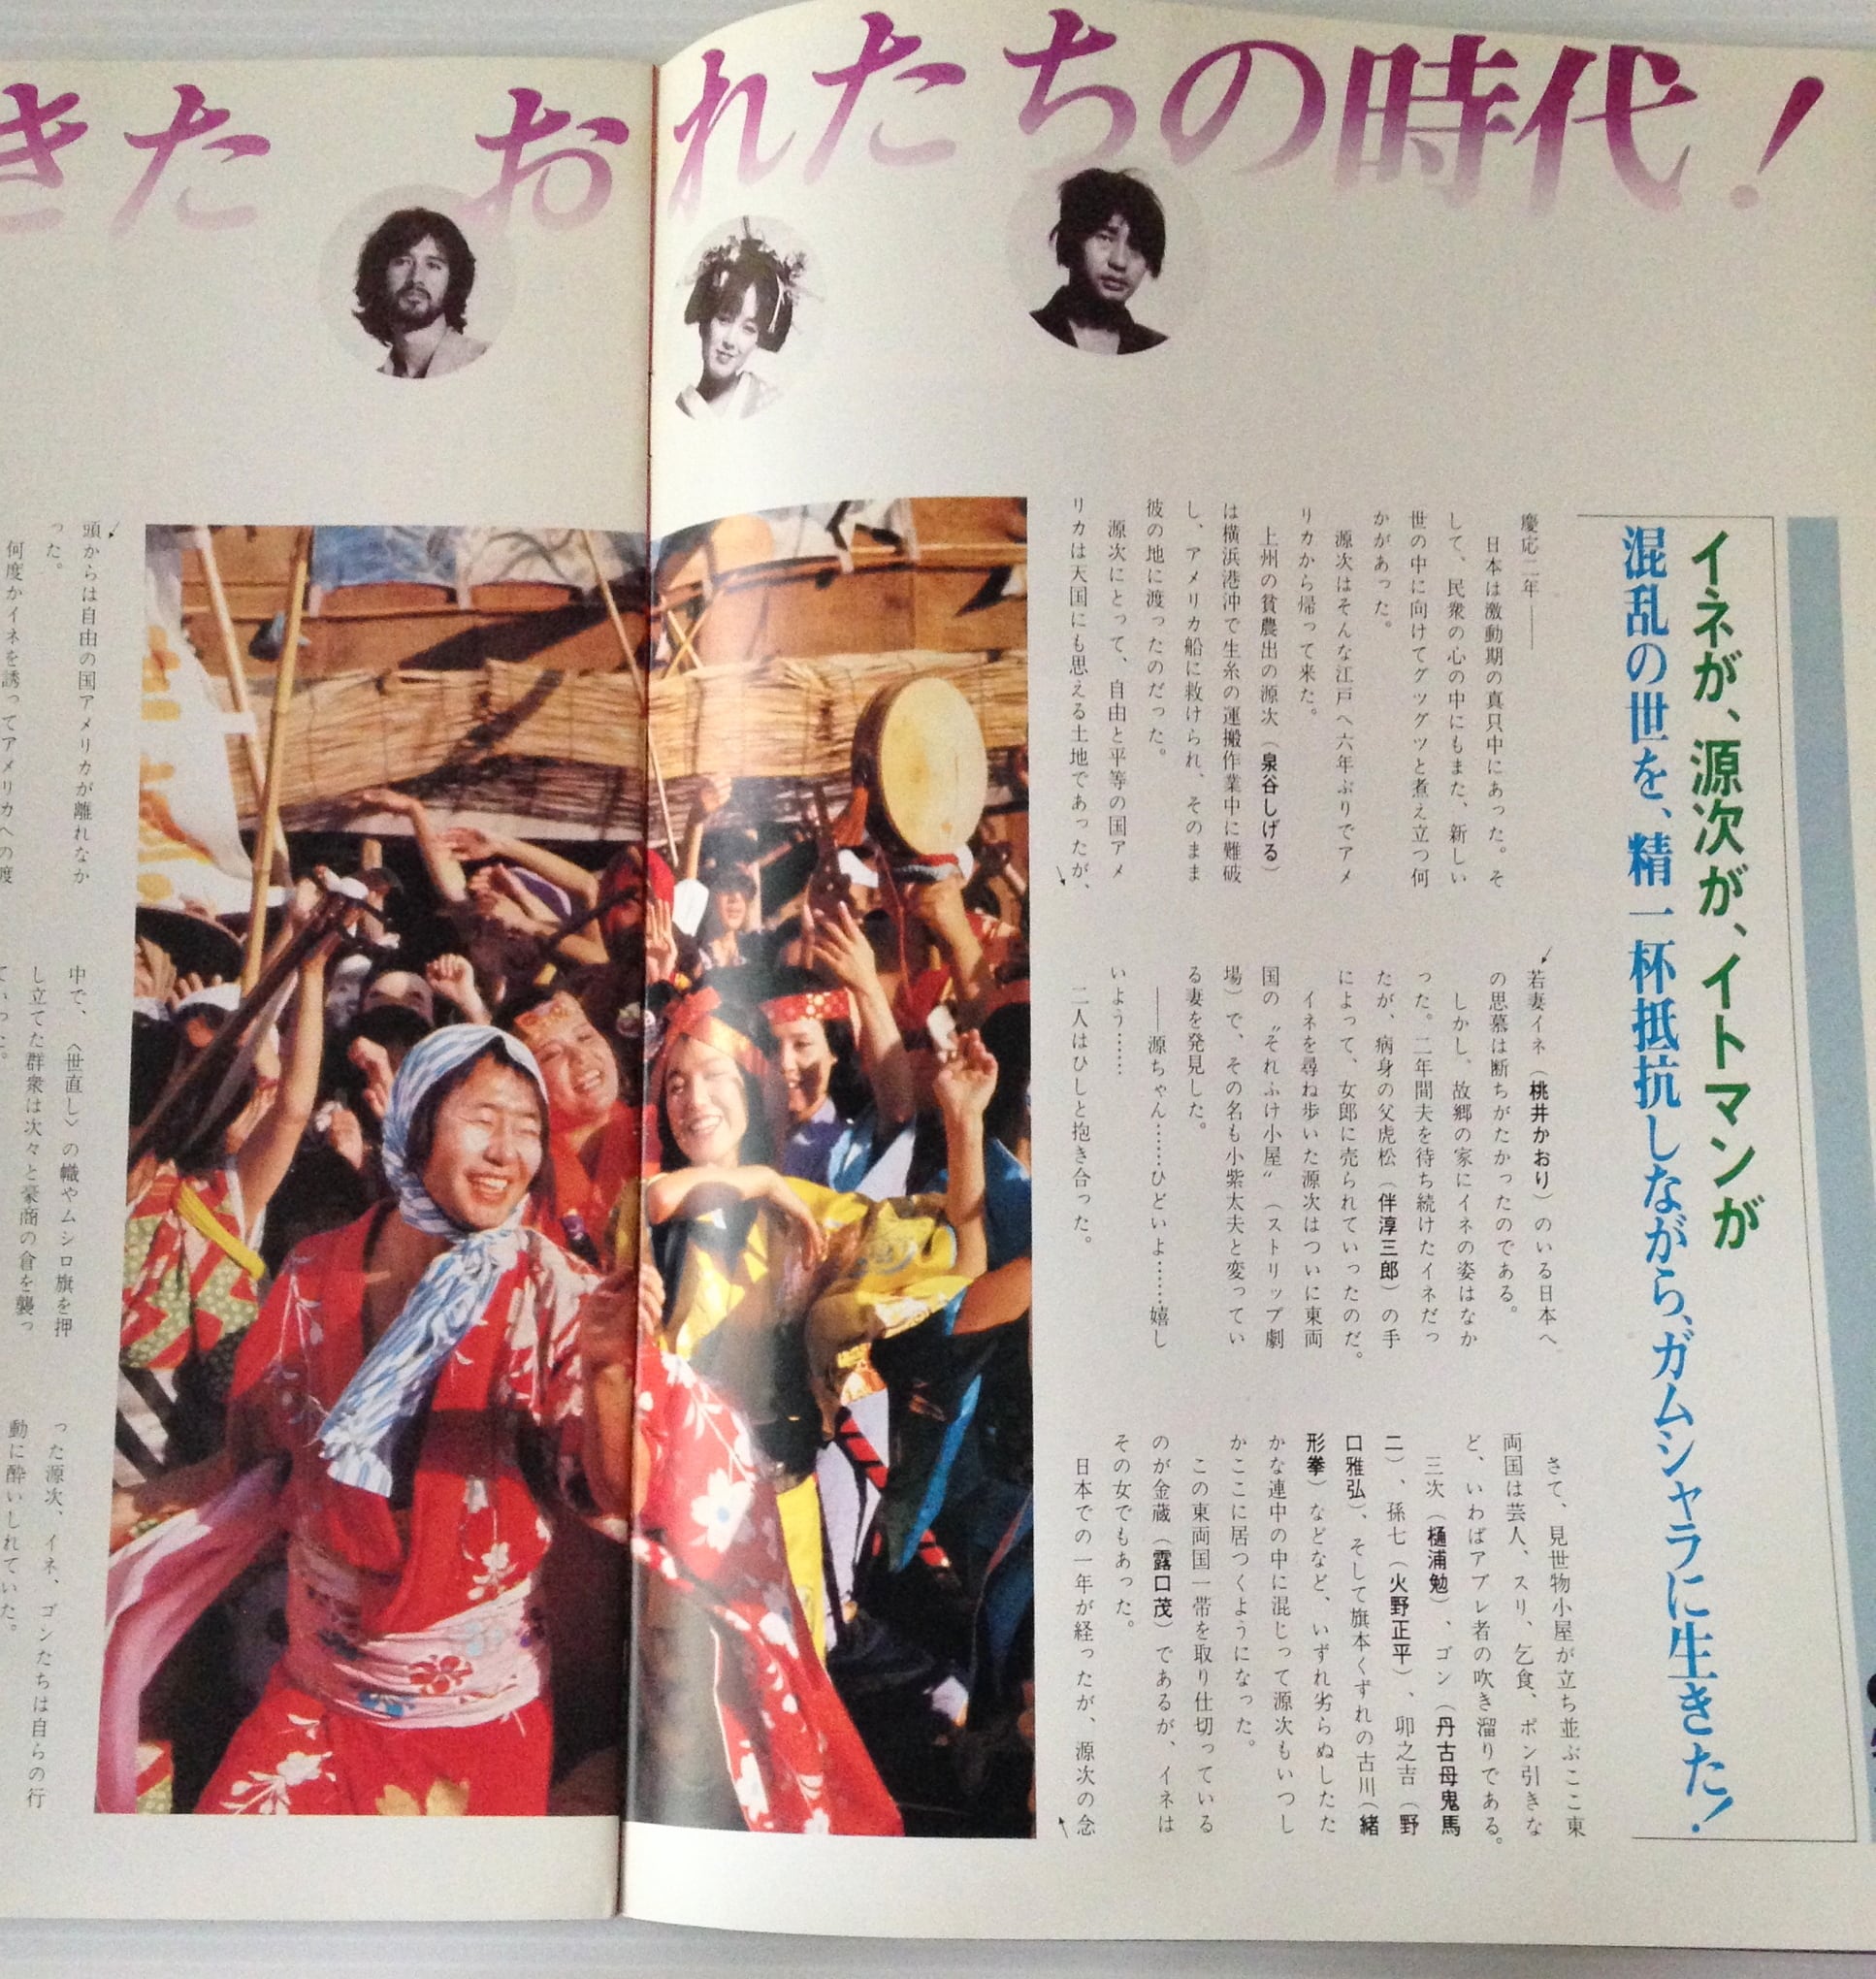 きた おれたちの時代！
イネが、源次が、イトマンが
混乱の世を、精一杯抵抗しながら、ガムシャラに生きた！
慶応二年――
日本は激動期の真只中にあった。そ
して、民衆の心の中にもまた、新しい
世の中に向けてグツグツと煮え立つ何
かがあった。
源次はそんな江戸へ六年ぶりでアメ
リカから帰って来た。
上州の貧農出の源次（泉谷しげる）
は横浜港沖で生糸の運搬作業中に難破
し、アメリカ船に救けられ、そのまま
彼の地に渡ったのだった。
源次にとって、自由と平等の国アメ
リカは天国にも思える土地であったが、
若妻イネ（桃井かおり）のいる日本へ
の思慕は断ちがたかったのである。
しかし、故郷の家にイネの姿はなか
った。二年間夫を待ち続けたイネだっ
たが、病身の父虎松（伴淳三郎）の手
によって、女郎に売られていったのだ。
イネを尋ね歩いた源次はついに東両
国の〝それふけ小屋〟（ストリップ劇
場）で、その名も小紫太夫と変ってい
る妻を発見した。
――源ちゃん……ひどいよ……嬉し
いよう……
二人はひしと抱き合った。
さて、見世物小屋が立ち並ぶここ東
両国は芸人、スリ、乞食、ポン引きな
ど、いわばアブレ者の吹き溜りである。
三次（樋浦勉）、ゴン（丹古母鬼馬
二）、孫七（火野正平）、卯之吉（野
口雅弘）、そして旗本くずれの古川（緒
形拳）などなど、いずれ劣らぬしたた
かな連中の中に混じって源次もいつし
かここに居つくようになった。
この東両国一帯を取り仕切っている
のが金蔵（露口茂）であるが、イネは
その女でもあった。
日本での一年が経ったが、源次の念
頭からは自由の国アメリカが離れなか
った。
何度かイネを誘ってアメリカへの渡
中で、〈世直し〉の幟やムシロ旗を押
し立てた群衆は次々と豪商の倉を襲っ
ていった。
った源次、イネ、ゴンたちは自らの行
動に酔いしれていた。